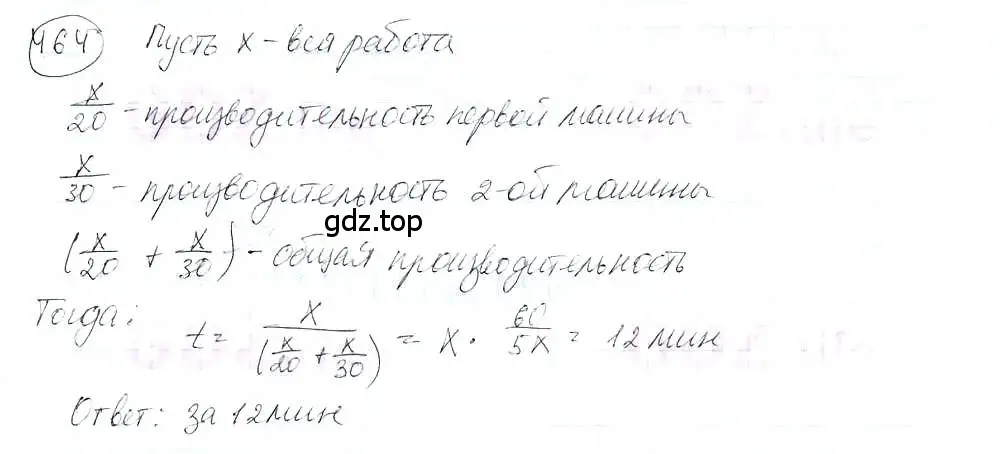 464 Пусть x - вся работа
x/20 - производительность первой машины
x/30 - производительность 2-ой машины
gdz.top
(x/20 + x/30) - общая производительность
Тогда:
t = x/(x/20 + x/30) = x · 60/5x = 12 мин
Ответ: за 12 мин